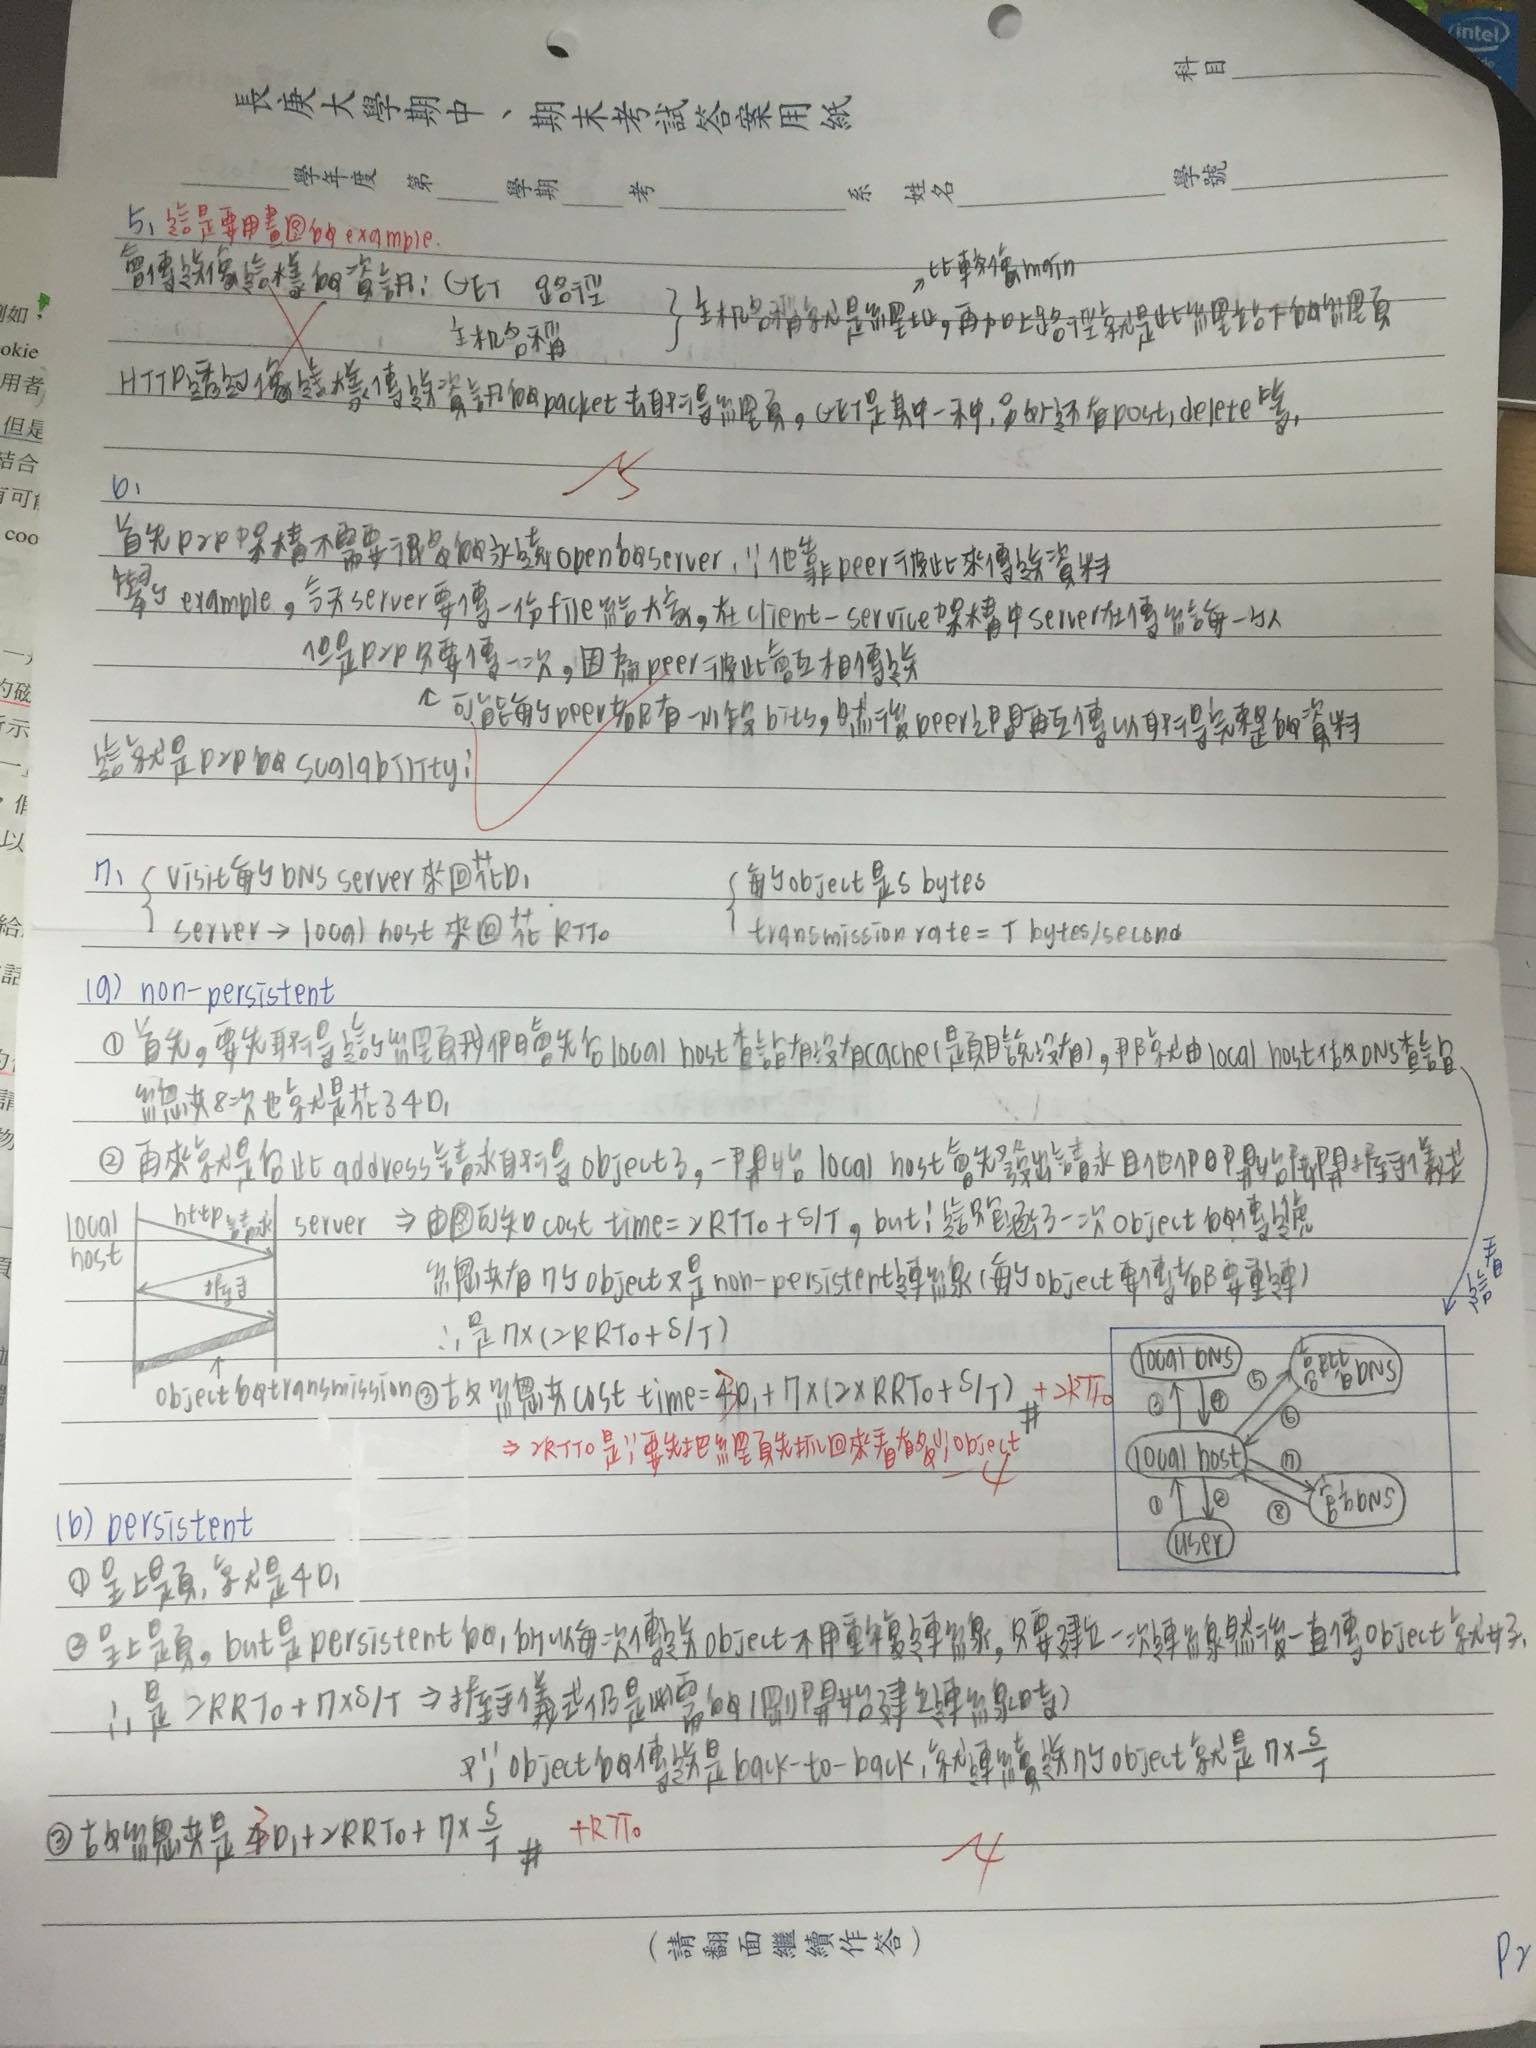 intel
科目
長庚大學期中、期末考試答案用紙
學年度 第 學期 考 系 姓名 學號
5. 這是要用畫圖的example.
會傳送像這樣的資訊: GET 路徑
主机名稱
主机名稱就是網址,再加上路徑就是此網站下的網頁
→比較像main
HTTP透過像這樣傳送資訊的packet去取得網頁,GET是其中一种,另外还有post,delete等.
-5
6.
首先P2P架構不需要很多的永遠open的server,∵他靠peer彼此來傳送資料
舉个example,今天server要傳一份file給大家,在client-service架構中server在傳給每一个人
但是P2P只要傳一次,因為peer彼此會互相傳送
↑可能每个peer都只有一小段bits,然後peer之間再互傳以取得完整的資料
這就是P2P的scalability!
7. visit每个DNS server來回花D1
server→local host 來回花 RTT0
每个object是S bytes
transmission rate = T bytes/second
(a) non-persistent
① 首先,要先取得這个網頁我們會先向local host查詢有沒有cache(題目說沒有),那就由local host做DNS查詢
總共8次也就是花了4D1
② 再來就是向此address請求取得object了,一開始 local host會先發出請求且他們開始展開握手儀式
local host
http請求
server
握手
object的transmission
⇒ 由圖可知cost time = 2RTT0 + S/T, but! 這只包涵了一次object的傳遞
總共有7个object又是non-persistent連線(每个object要傳都要重連)
∴是7×(2RRT0+S/T)
③故總共cost time = 4D1+7×(2×RRT0+S/T) # +2RTT0
3
⇒ 2RTT0是∵要先把網頁先抓回來看有多少object
-4
local DNS
local host
user
① ② ③ ④ ⑤ ⑥ ⑦ ⑧
(b) persistent
①呈上題,就是4D1
②呈上題,but是persistent的,所以每次傳送object不用重複連線,只要建立一次連線然後一直傳object就好了.
∴是 2RRT0+7×S/T ⇒握手儀式仍是必需的(剛開始建立連線時)
又∵object的傳送是back-to-back,就連續送7个object就是7×S/T
③故總共是4D1+2RRT0+7×S/T # +RTT0
3
-4
(請翻面繼續作答)
P2
例如
okie
用者
但是
結合
有可能
coo